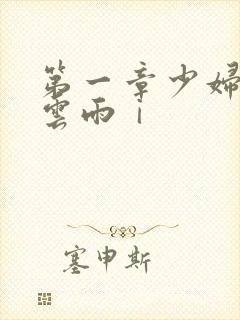 第一章少婦
雲雨｜
塞申斯